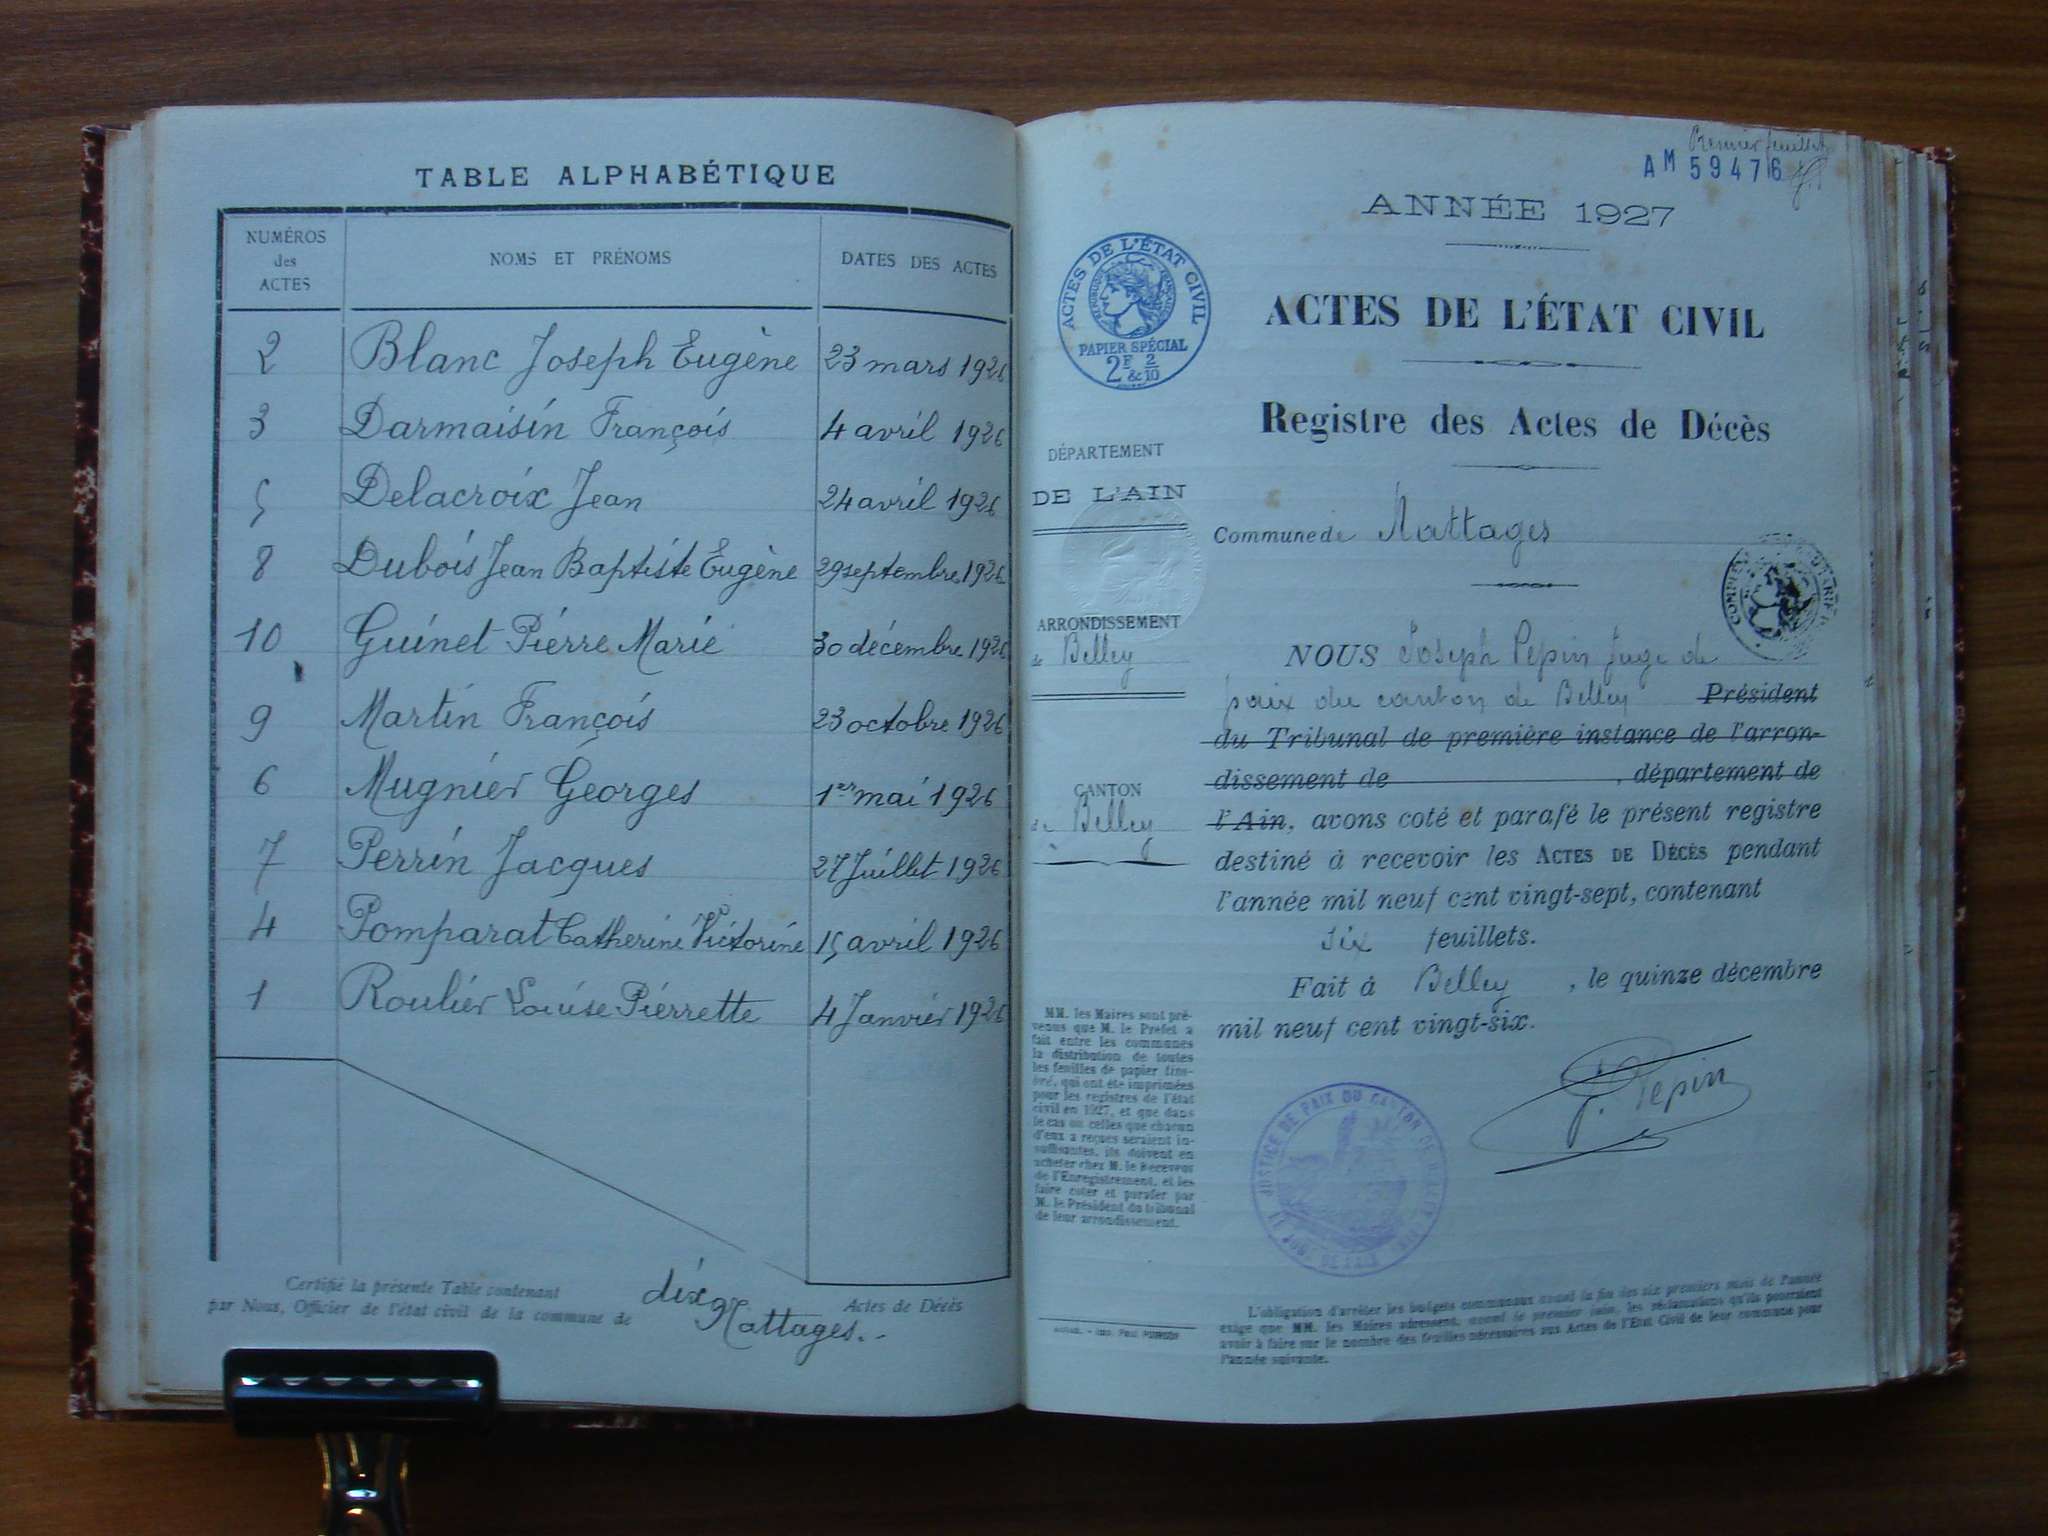 TABLE ALPHABÉTIQUE
NUMÉROS des ACTES NOMS ET PRÉNOMS DATES DES ACTES
2 Blanc Joseph Eugène 23 mars 1926
3 Darmaisin François 4 avril 1926
5 Delacroix Jean 24 avril 1926
8 Dubois Jean Baptiste Eugène 29 septembre 1926
10 Guinet Pierre Marie 30 décembre 1926
9 Martin François 23 octobre 1926
6 Mugnier Georges 1er mai 1926
7 Perrin Jacques 27 Juillet 1926
4 Pomparat Catherine Victorine 15 avril 1926
1 Roulier Louise Pierrette 4 Janvier 1926
Certifié la présente Table contenant dix Actes de Décès
par Nous, Officier de l'état civil de la commune de Nattages.
Premier feuillet
AM 59476
ANNÉE 1927
ACTES DE L'ÉTAT CIVIL
RÉPUBLIQUE FRANÇAISE
PAPIER SPÉCIAL
2F & 2/10
ACTES DE L'ÉTAT CIVIL
Registre des Actes de Décès
DÉPARTEMENT
DE L'AIN
Commune de Nattages
ARRONDISSEMENT
de Belley
CANTON
de Belley
NOUS Joseph Pepin Juge de
paix du canton de Belley Président
du Tribunal de première instance de l'arron-
dissement de , département de
l'Ain, avons coté et parafé le présent registre
destiné à recevoir les ACTES DE DÉCÈS pendant
l'année mil neuf cent vingt-sept, contenant
six feuillets.
Fait à Belley, le quinze décembre
mil neuf cent vingt-six.
J. Pepin
JUSTICE DE PAIX DU CANTON DE BELLEY
MM. les Maires sont pré-
venus que M. le Préfet a
fait entre les communes
la distribution de toutes
les feuilles de papier tim-
bré, qui ont été imprimées
pour les registres de l'état
civil en 1927, et que dans
le cas où celles que chacun
d'eux a reçues seraient in-
suffisantes, ils doivent en
acheter chez M. le Receveur
de l'Enregistrement, et les
faire coter et parafer par
M. le Président du tribunal
de leur arrondissement.
L'obligation d'arrêter les budgets communaux avant la fin des six premiers mois de l'année
exige que MM. les Maires adressent, avant le premier juin, les réclamations qu'ils pourraient
avoir à faire sur le nombre des feuilles nécessaires aux Actes de l'État Civil de leur commune pour
l'année suivante.